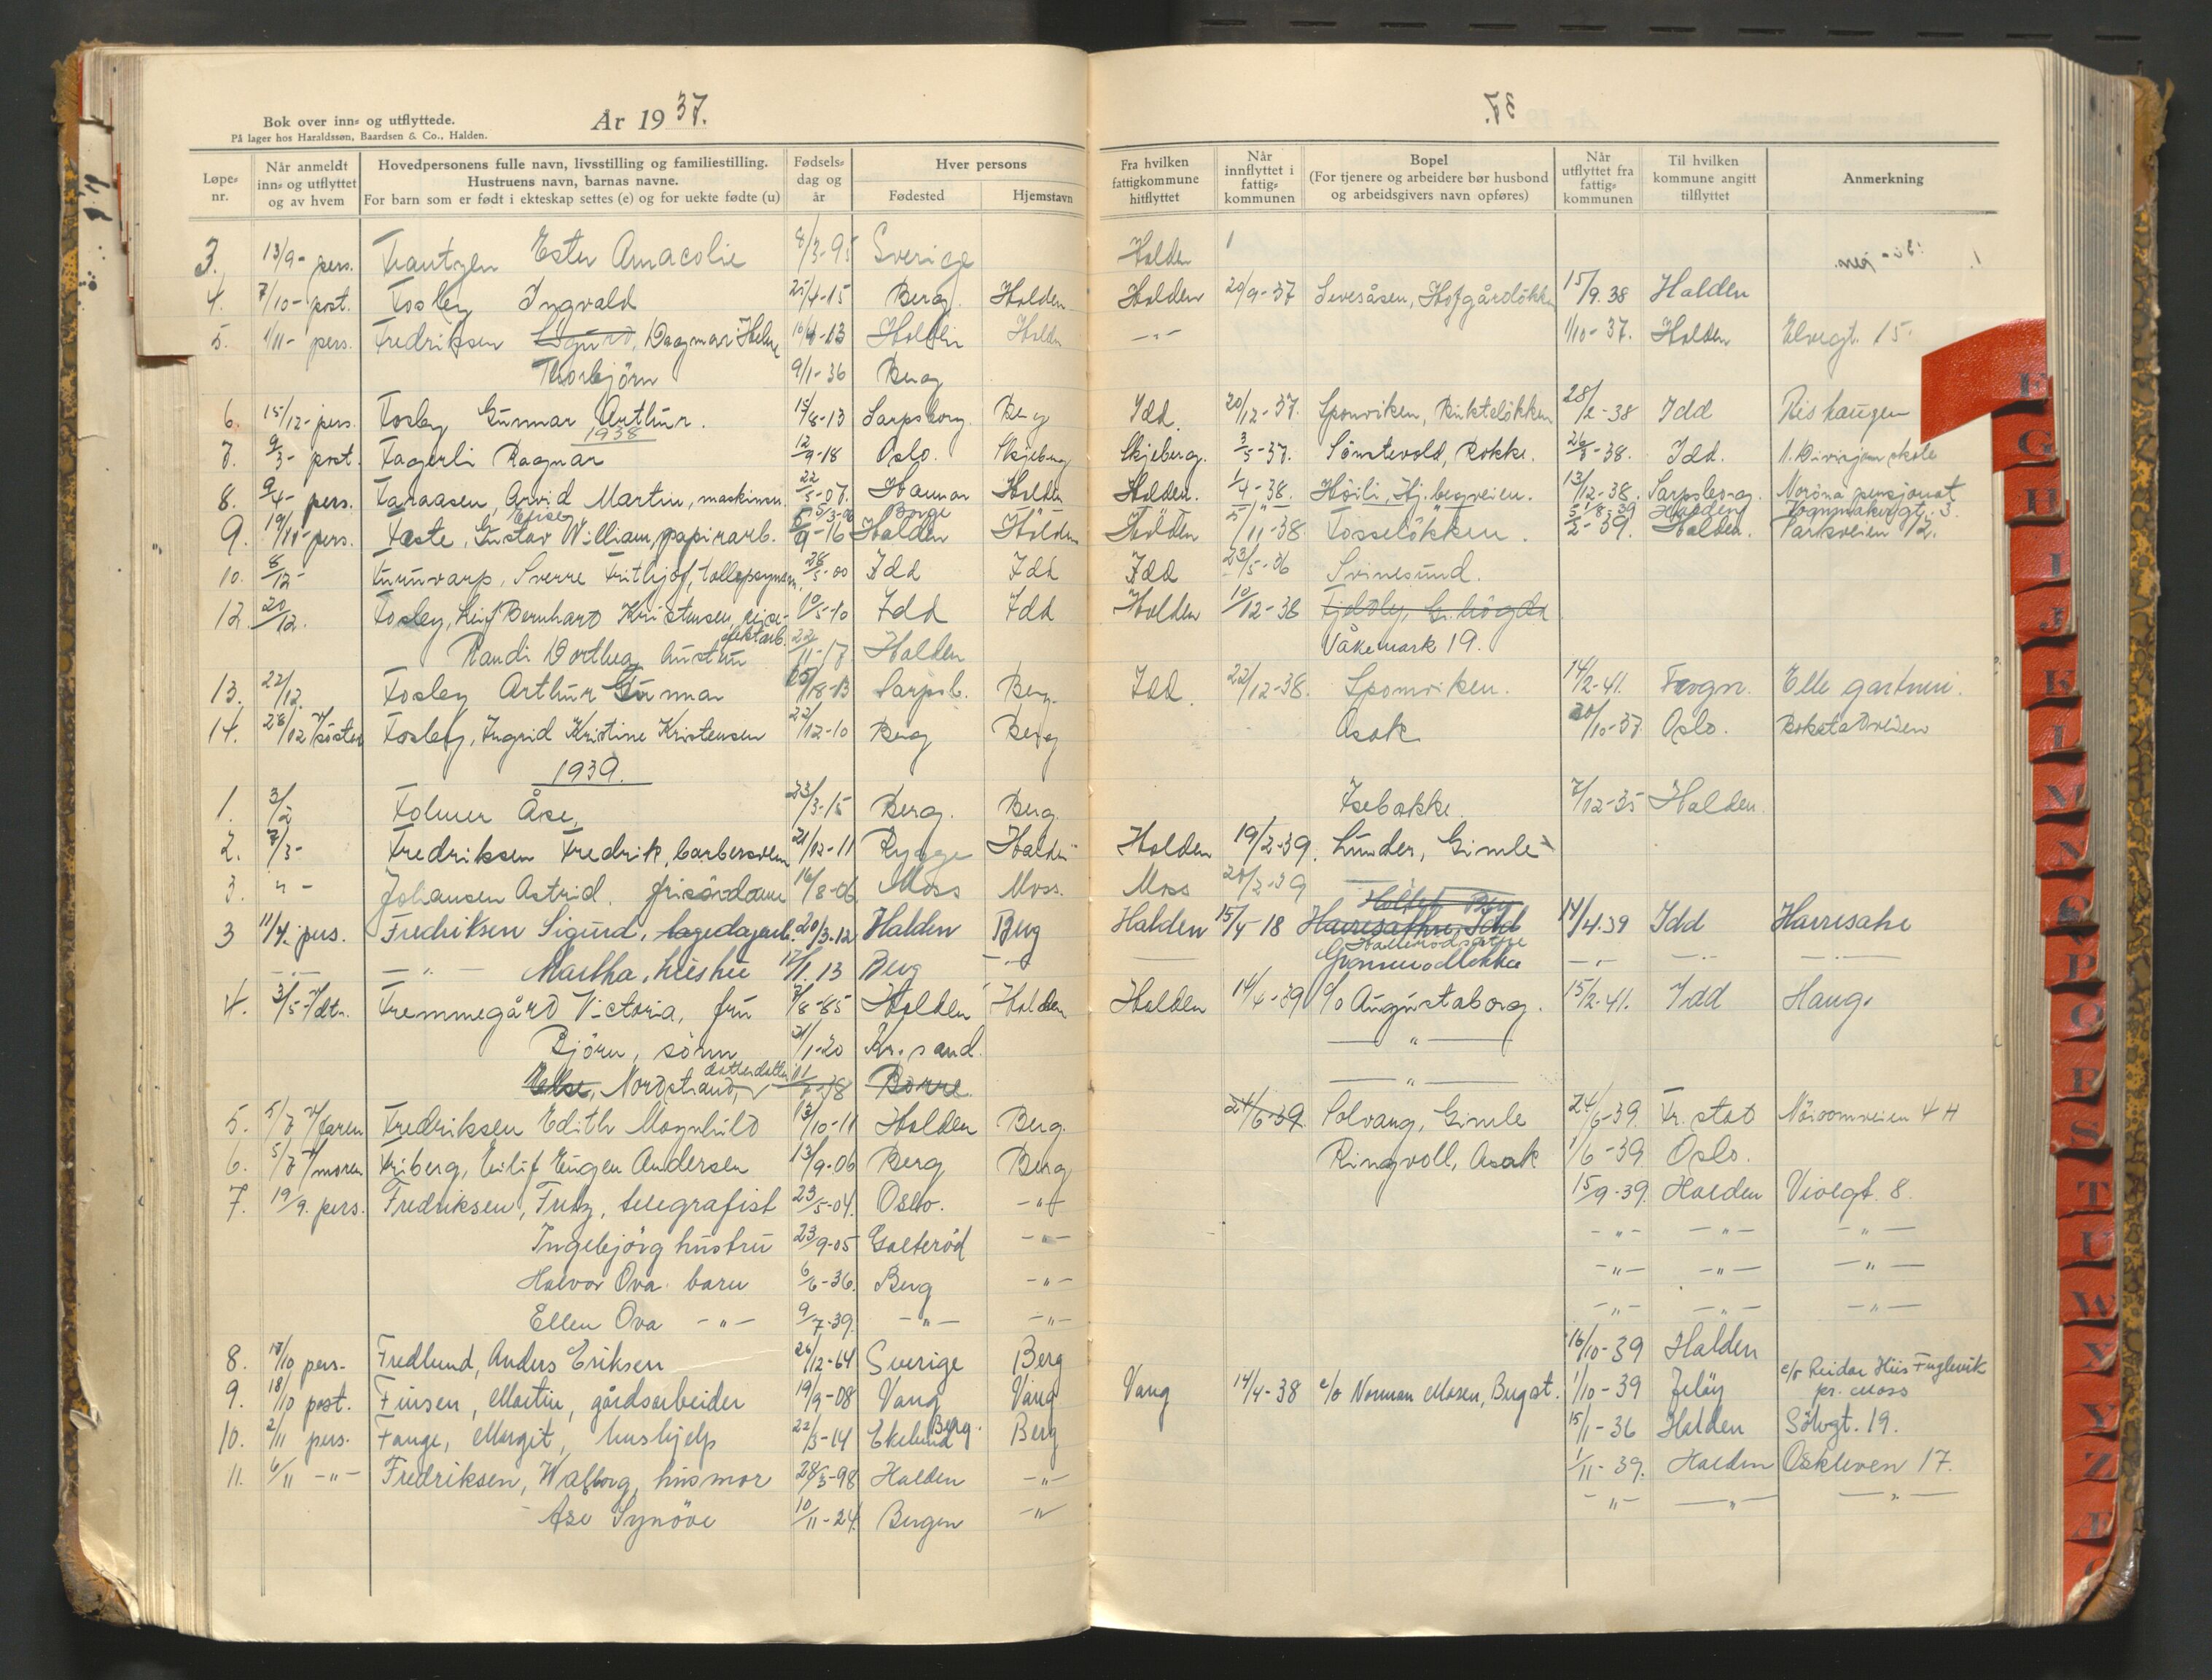 Bok over inn- og utflyttede.
På lager hos Haraldssøn, Baardsen & Co., Halden.
År 1937.
37.
Løpe-nr. Når anmeldt inn- og utflyttet og av hvem Hovedpersonens fulle navn, livsstilling og familiestilling. Hustruens navn, barnas navne. For barn som er født i ekteskap settes (e) og for uekte fødte (u) Fødsels-dag og år Hver persons Fødested Hjemstavn Fra hvilken fattigkommune hitflyttet Når innflyttet i fattig-kommunen Bopel (For tjenere og arbeidere bør husbond og arbeidsgivers navn opføres) Når utflyttet fra fattig-kommunen Til hvilken kommune angitt tilflyttet Anmerkning
3. 13/9- pers. Frantzen Ester 8/3-95 Sverige Halden
4. 7/10- post. Fosby Ingvald 25/4-15 Berg. Halden Halden 20/9-37 15/9.38 Halden
5. 1/11- pers. Fredriksen Sigurd, Dagmar Helene 10/4-13 Halden Halden -"- 1/10-37. Halden Elvegt. 15.
Thorbjörn 9/1-36 Berg
6. 15/12- pers. Fosby Gunnar Arthur. 15/8-13 Sarpsborg. Berg Idd. 20/12-37. Sponviken, 28/2-38 Idd Rishaugen
1938
7. 9/3- post. Fagerli Ragnar 12/9-18 Oslo. Skjeberg Skjeberg. 3/5-37. Rokke. 26/3-38. Idd. 1. Divisjonskole
8. 9/4- pers. Faraasen, Arvid Martin, maskinm. 22/5-07. Hamar Halden Halden. 1/4-38. Höili, 13/12-38. Sarpsborg. Noröna pensjonat
Borge Halden Vognmakergt. 3.
9. 19/11- pers. Faste, Gustav William, papirarb. 5/9-16 Halden Halden Halden 5/11-38 Fosselökken. 2/2-39. Halden. Parkveien 12.
10. 8/12- Furuvarp, Sverre Frithjof, 28/5-00 Idd Idd Idd 23/5-36 Svinesund.
12. 20/12. Fosby, Leif Bernhard Kristensen, reise- 10/5-10 Idd Idd Halden 10/12-38 Fjeldly,
Randi Dorthea hustru 22/11-17 Halden Våkemark 19.
13. 22/12. Fosby Arthur Gunnar 15/8-13 Sarpsb. Berg. Idd. 22/12-38. Sponviken. 14/2-41. Frogn. Elle gartneri.
14. 28/12 v/söster Fosby, Ingrid Kristine Kristensen 22/12-10 Berg Berg Asak 20/10-37 Oslo. Bokstadveien
1939.
1. 3/2 Folmer Åse, 23/3-15 Berg. Berg. Isebakke. 7/12-35 Halden.
2. 7/3- Fredriksen Fredrik, barbersvenn 21/12-11 Rygge Halden Halden 19/2-39. Lunder, Gimle
3. "- Johansen Astrid. frisördame 16/8-06 Moss Moss. Moss 20/2-39
3 11/4. pers. Fredriksen Sigurd, lagedagarb. 20/3.12 Halden Berg Halden 15/4 18 14/4.39 Idd Harresake
-"- -"- Martha, hustru 12/1.13 Berg -"- -"- -"- -"-
4. 3/5- v/dtr. Fremmegård Victoria, fru 7/8-85 Halden Halden Halden 14/4-39 c/o Augustaborg. 15/2-41. Idd Haug.
Björn, sönn 21/1-20 Kr. sand. -"-
Else, Nordstrand, datterdatter Borre. -"-
5. 5/7 v/faren Fredriksen Edith Magnhild 13/10-11 Halden Berg. 24/6-39. Solvang, Gimle 24/6-39. Fr. stad Nöisomveien 4 H
6. 5/7 v/moren Friberg, Eilif Eugen Andersen 13/9-06 Berg Berg Ringvoll, Asak 1/6-39 Oslo.
7. 19/9. pers. Fredriksen, Fritz, telegrafist 23/5-04. Oslo. -"- 15/9-39. Halden Violgt. 8.
Ingebjörg hustru 23/9-05 -"- -"- -"- -"-
Halvor Ova barn 6/6-36. Berg -"- -"- -"- -"-
Ellen Ova -"- 9/7-39. -"- -"- -"- -"- -"-
8. 17/10 pers. Fredlund, Anders Eriksen 26/12-64 Sverige Berg 16/10-39 Halden
9. 18/10 post. Finsen, Martin, gårdsarbeider 19/9-08 Vang Vang Vang 14/4-38 c/o Norman Mosen, Bergst. 1/10-39 Jelöy c/o Reidar Hiis Fuglevik pr. Moss
10. 2/11 pers. Fange, Margit, hushjelp 22/3-14 Ekelund Berg. Berg 15/1-36 Halden Sölvgt. 19.
11. 6/11 -"- Fredriksen, Walborg, husmor 28/3-98 Halden -"- 1/11-39. Halden Oskleven 17.
Åse Synöve 10/11-24. Bergen -"- -"- -"- -"-
F
G
H
I
J
K
L
M
N
O
P
Q
R
S
T
U
W
X
Y
Z